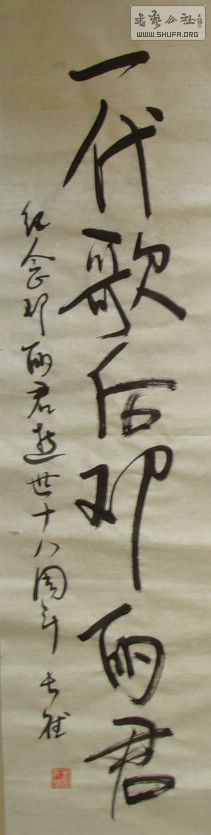 一代歌后邓丽君
纪念邓丽君逝世十八周年 长征
书艺公社
WWW.SHUFA.ORG